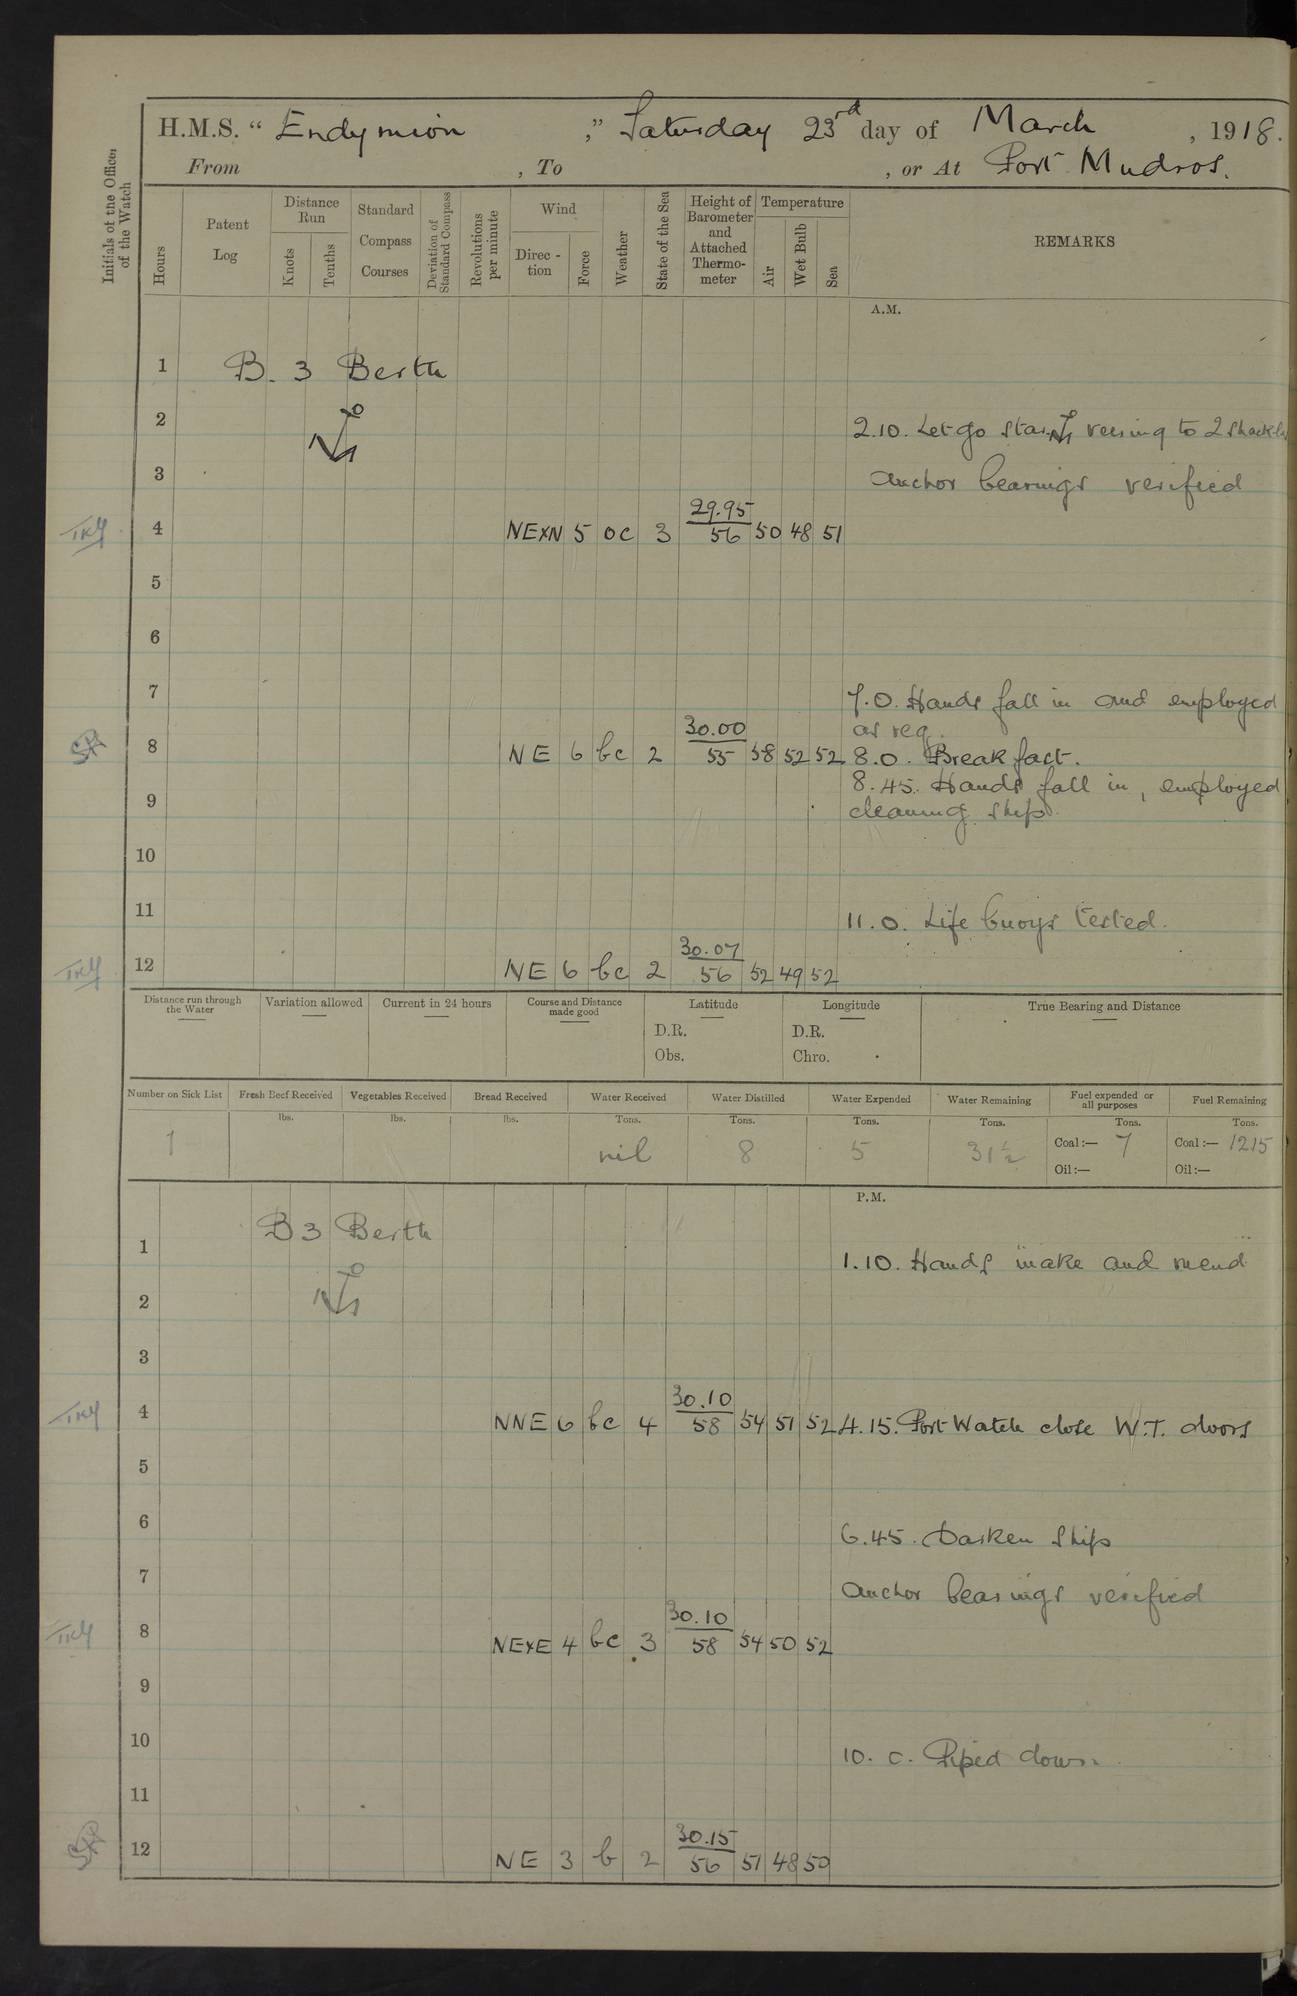 H.M.S. “ Endymion ,” Saturday 23rd day of March , 1918.
From , To , or At Port Mudros.
Initials of the Officer of the Watch
Hours
Patent Log
Distance Run
Knots
Tenths
Standard Compass Courses
Deviation of Standard Compass
Revolutions per minute
Wind
Direc-tion
Force
Weather
State of the Sea
Height of Barometer and Attached Thermo-meter
Temperature
Air
Wet Bulb
Sea
REMARKS
A.M.
1 B. 3 Berth
2 2.10. Let go star. ⚓ veering to 2 shackles
3 anchor bearings verified
4 NExN 5 oc 3 29.95/56 50 48 51
5
6
7 7.0. Hands fall in and employed
as req.
8 NE 6 bc 2 30.00/55 58 52 52 8.0. Breakfast.
8.45. Hands fall in, employed
9 cleaning ship.
10
11 11.0. Life buoys tested.
12 NE 6 bc 2 30.07/56 52 49 52
Distance run through the Water
Variation allowed
Current in 24 hours
Course and Distance made good
Latitude
D.R.
Obs.
Longitude
D.R.
Chro.
True Bearing and Distance
Number on Sick List
1
Fresh Beef Received
lbs.
Vegetables Received
lbs.
Bread Received
lbs.
Water Received
Tons.
nil
Water Distilled
Tons.
8
Water Expended
Tons.
5
Water Remaining
Tons.
31½
Fuel expended or all purposes
Tons.
Coal :— 7
Oil :—
Fuel Remaining
Tons.
Coal :— 1215
Oil :—
P.M.
B 3 Berth
1 1.10. Hands make and mend
2
3
4 NNE 6 bc 4 30.10/58 54 51 52 4.15. Port Watch close W.T. doors
5
6 6.45. Darken Ship
7 anchor bearings verified
8 NExE 4 bc 3 30.10/58 54 50 52
9
10 10.0. Piped down.
11
12 NE 3 b 2 30.15/56 51 48 50